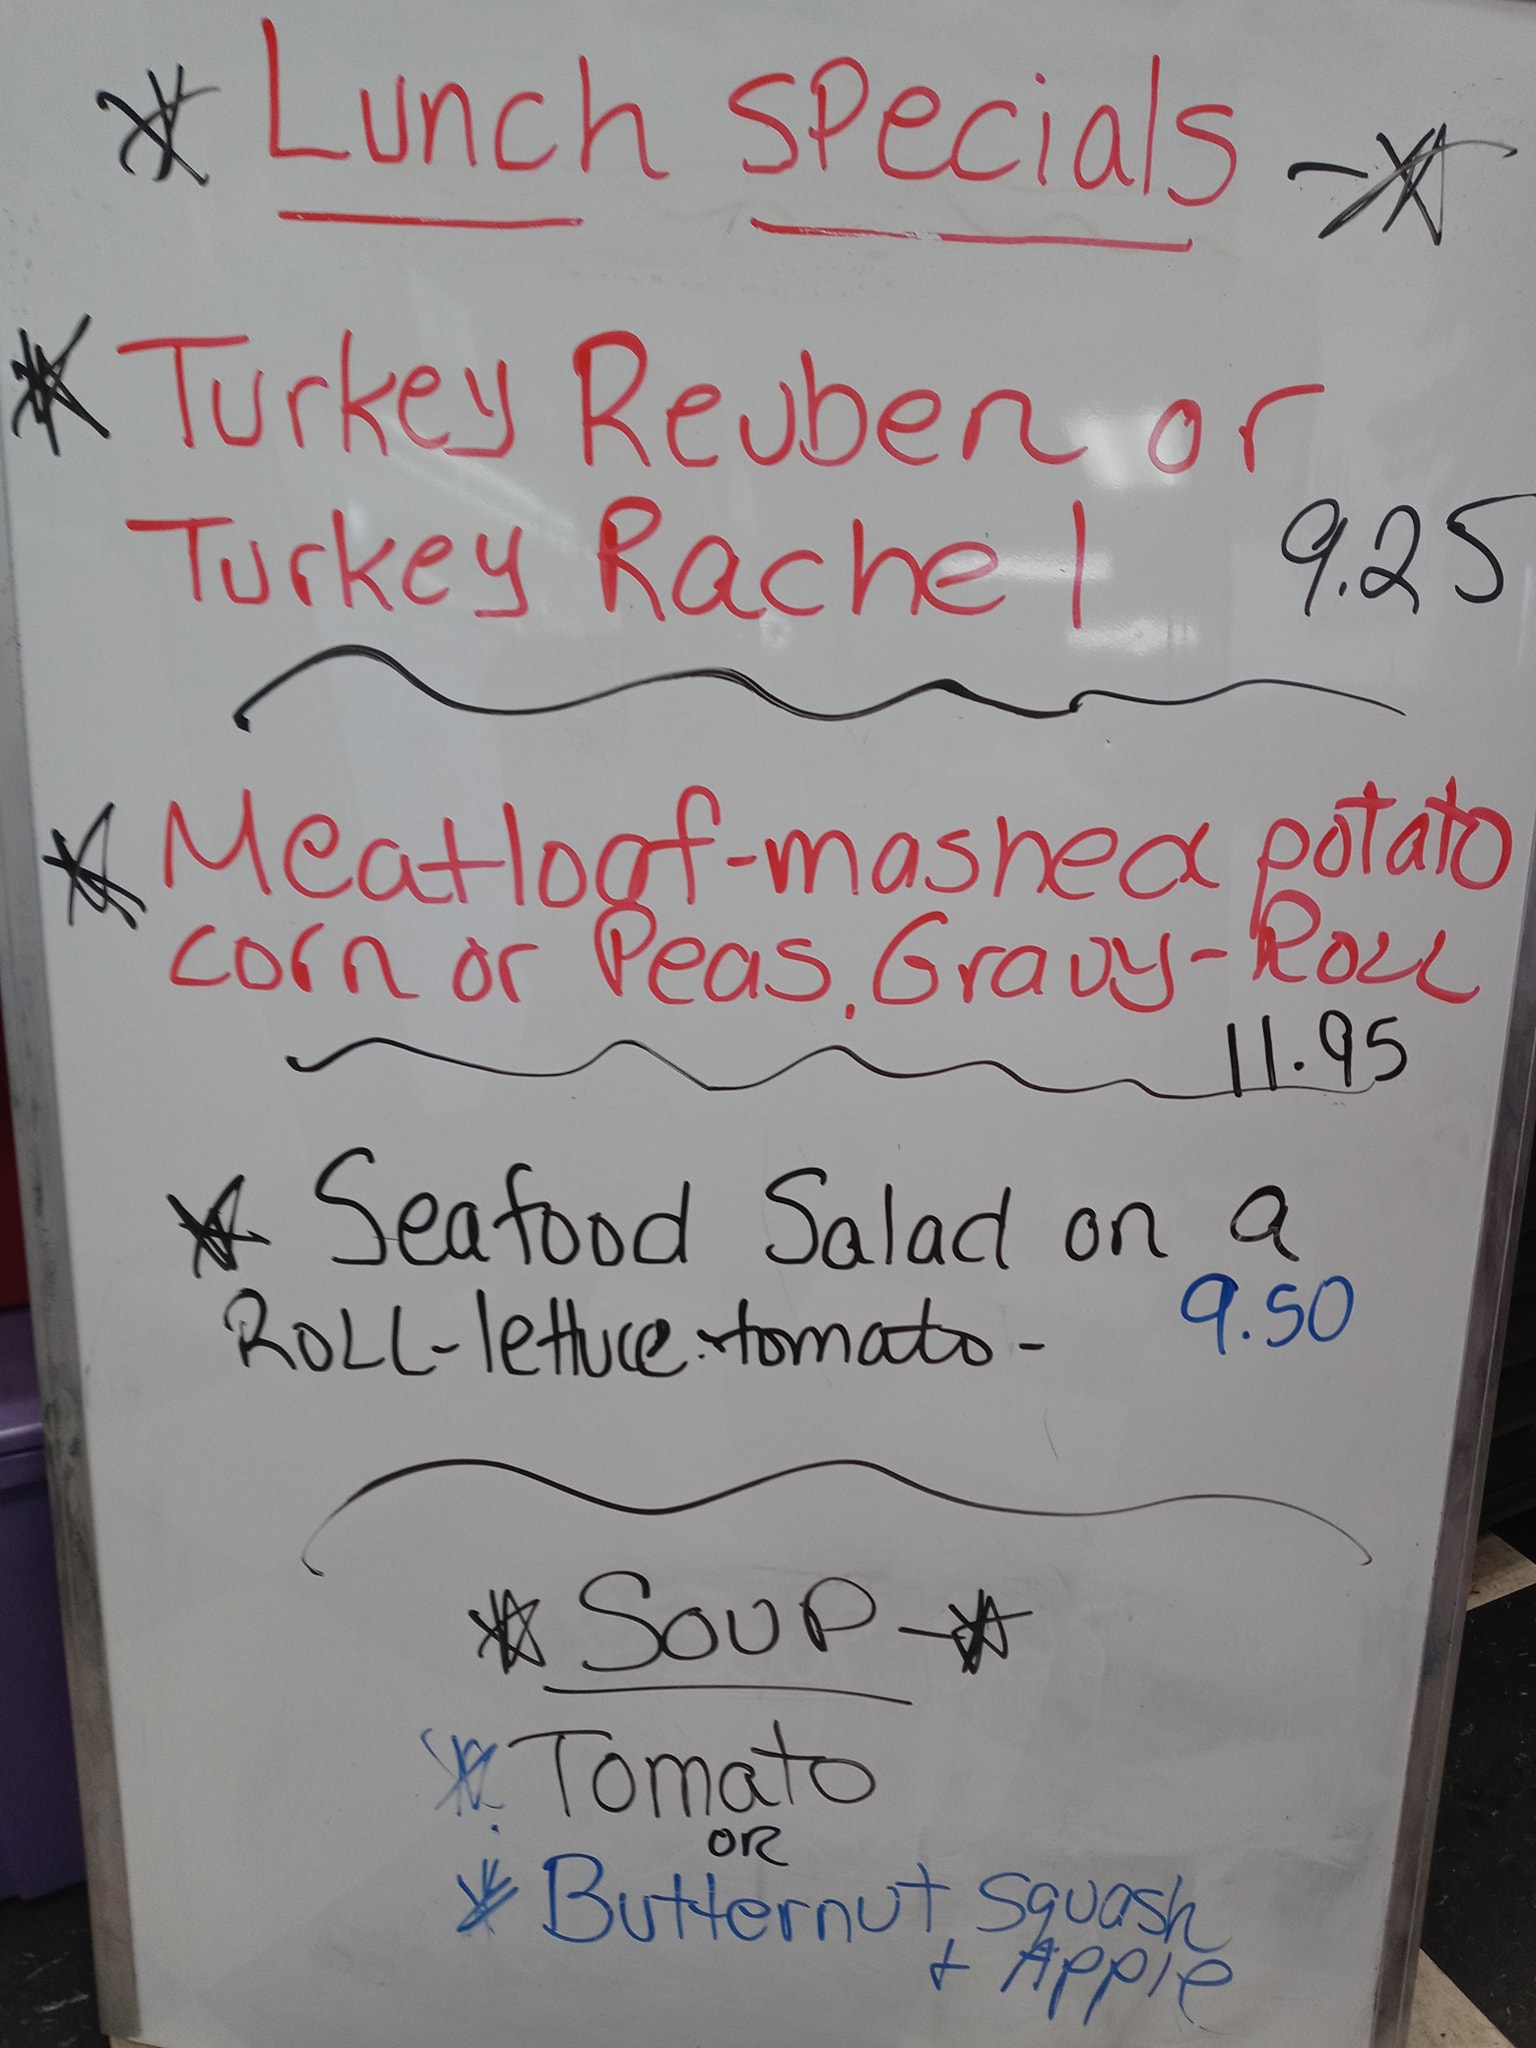 Lunch Specials
Turkey Reuben or
Turkey Rachel 9.25
Meatloaf-mashed potato
corn or Peas. Gravy-Roll
11.95
Seafood Salad on a
ROLL-lettuce.tomato- 9.50
SOUP
Tomato
OR
Butternut Squash
+ Apple